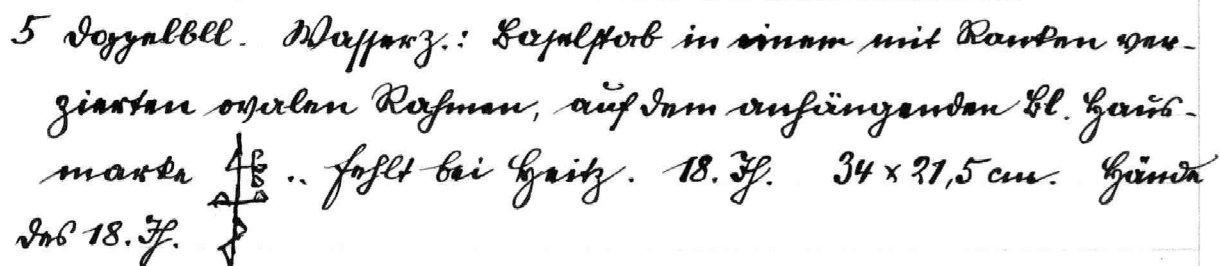 5 Doppelbll. Wasserz.: Baselstab in einem mit Ranken ver-
zierten ovalen Rahmen, auf dem anhängenden Bl. Haus-
marke .. fehlt bei Heitz. 18. Jh. 34 x 21,5 cm. Hände
des 18. Jh.